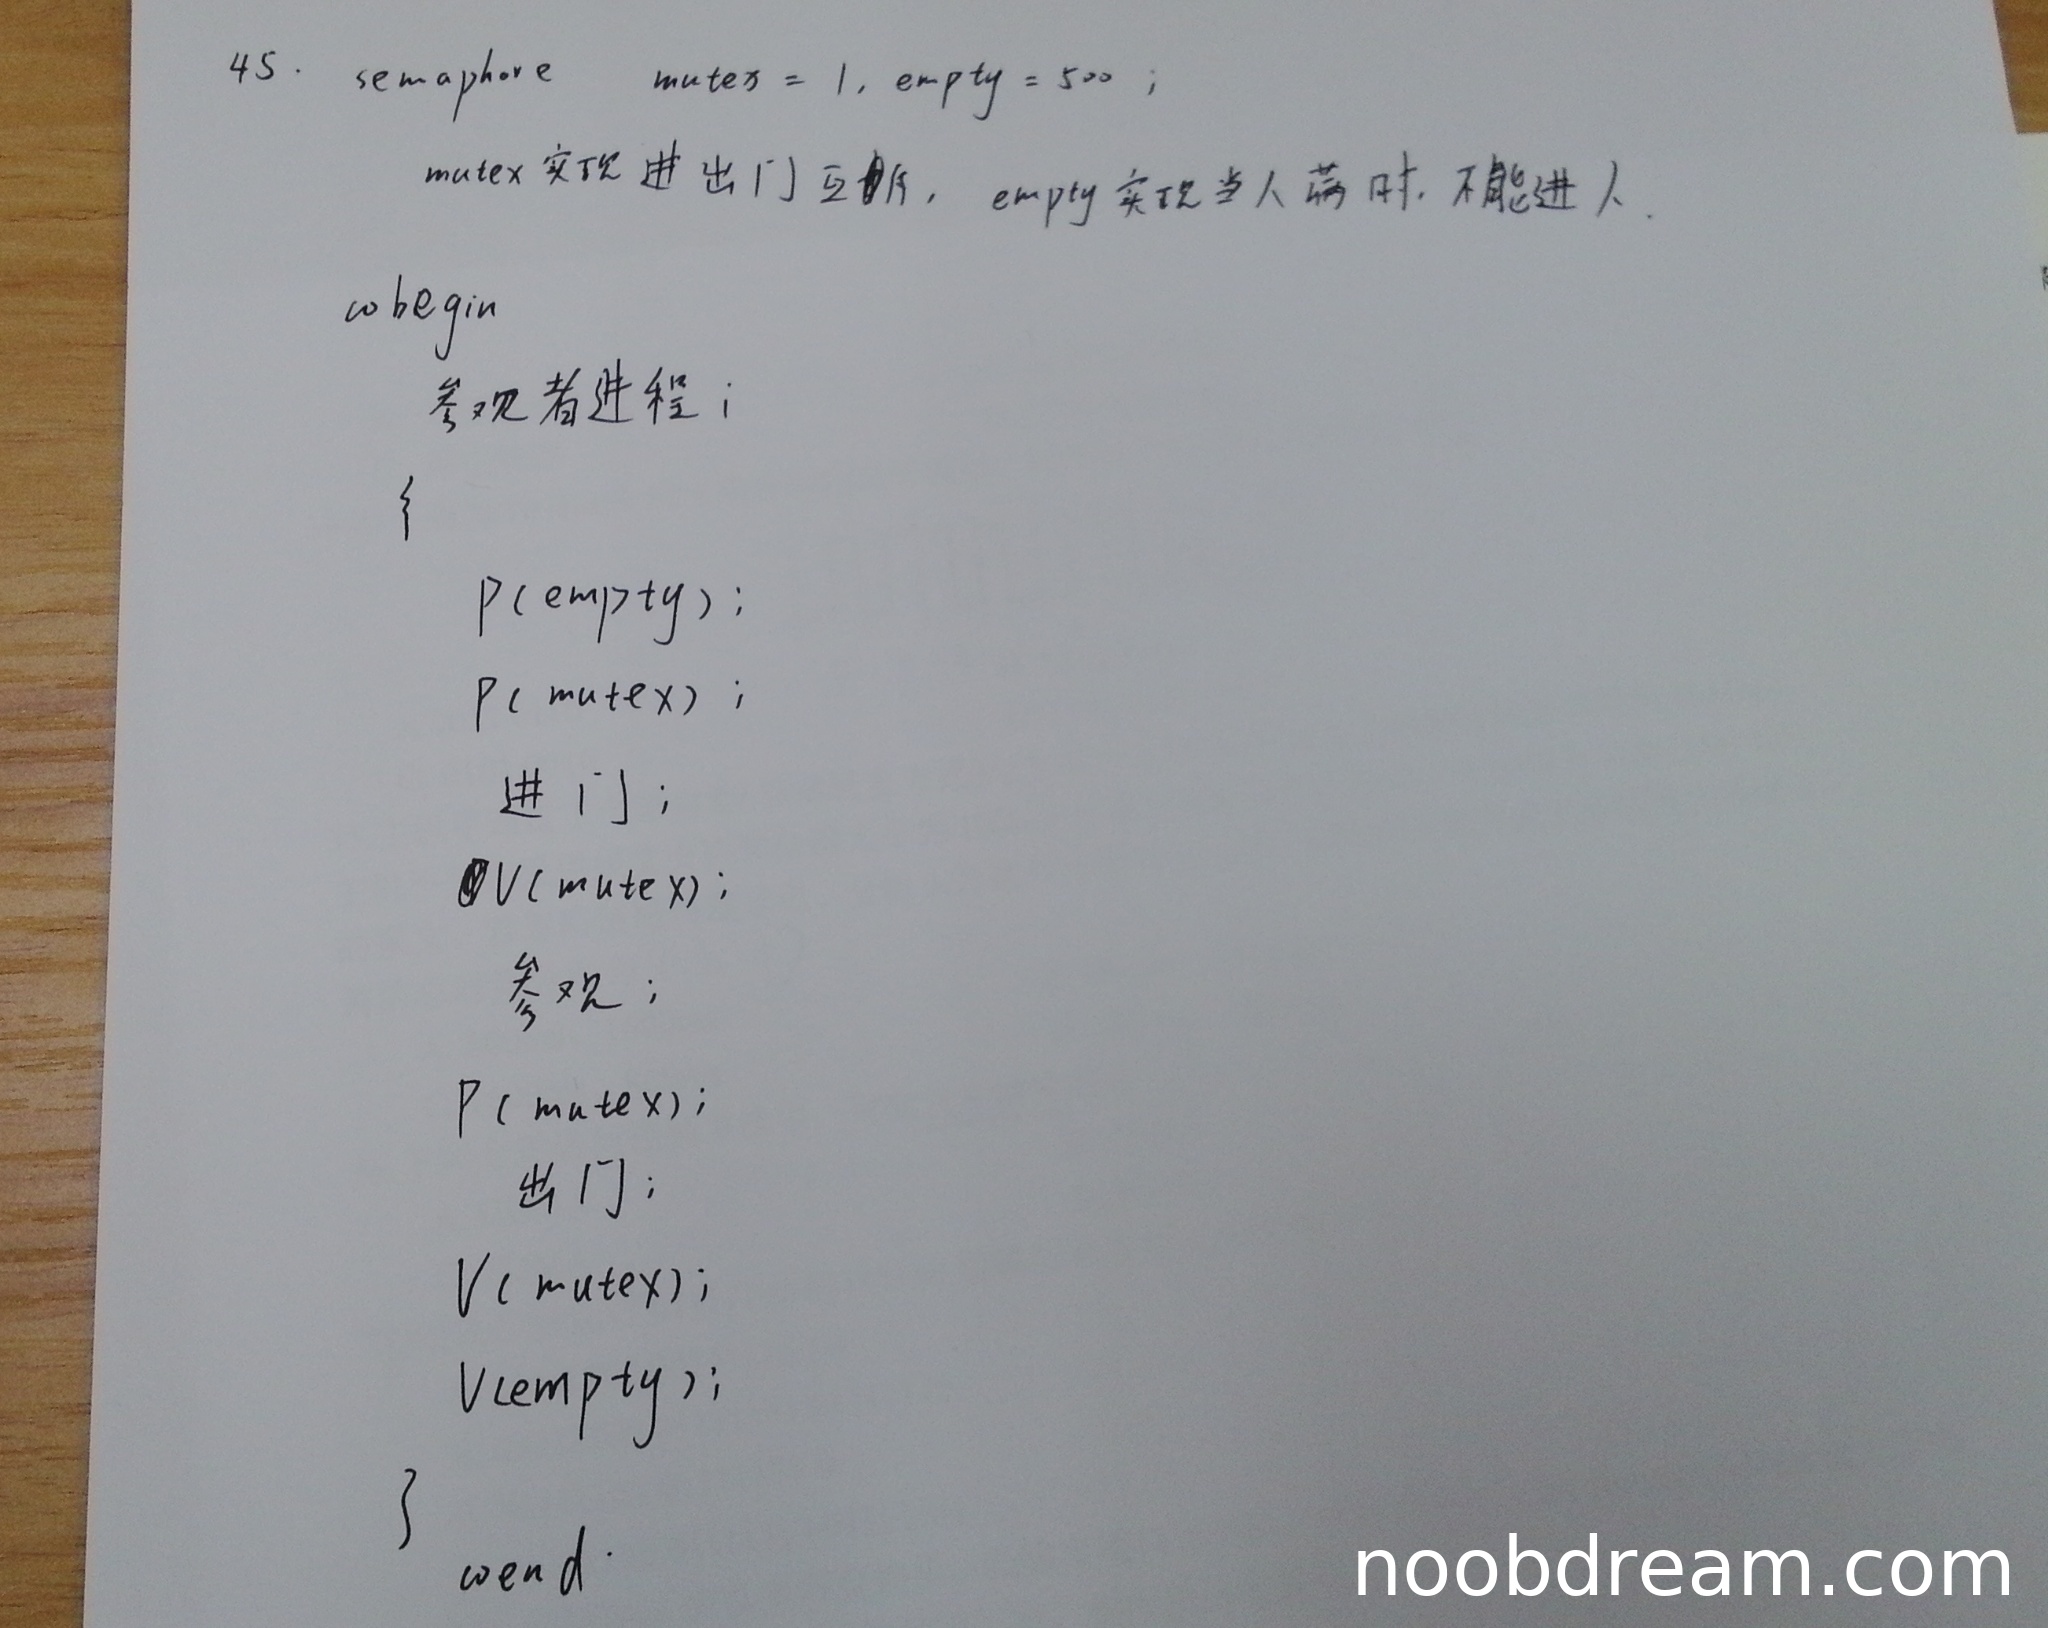 45. semaphore mutex = 1, empty = 500 ;
mutex 实现进出门互斥, empty 实现当人满时, 不能进人.
cobegin
参观者进程;
{
P(empty);
P(mutex);
进门;
V(mutex);
参观;
P(mutex);
出门;
V(mutex);
V(empty);
}
coend.
noobdream.com